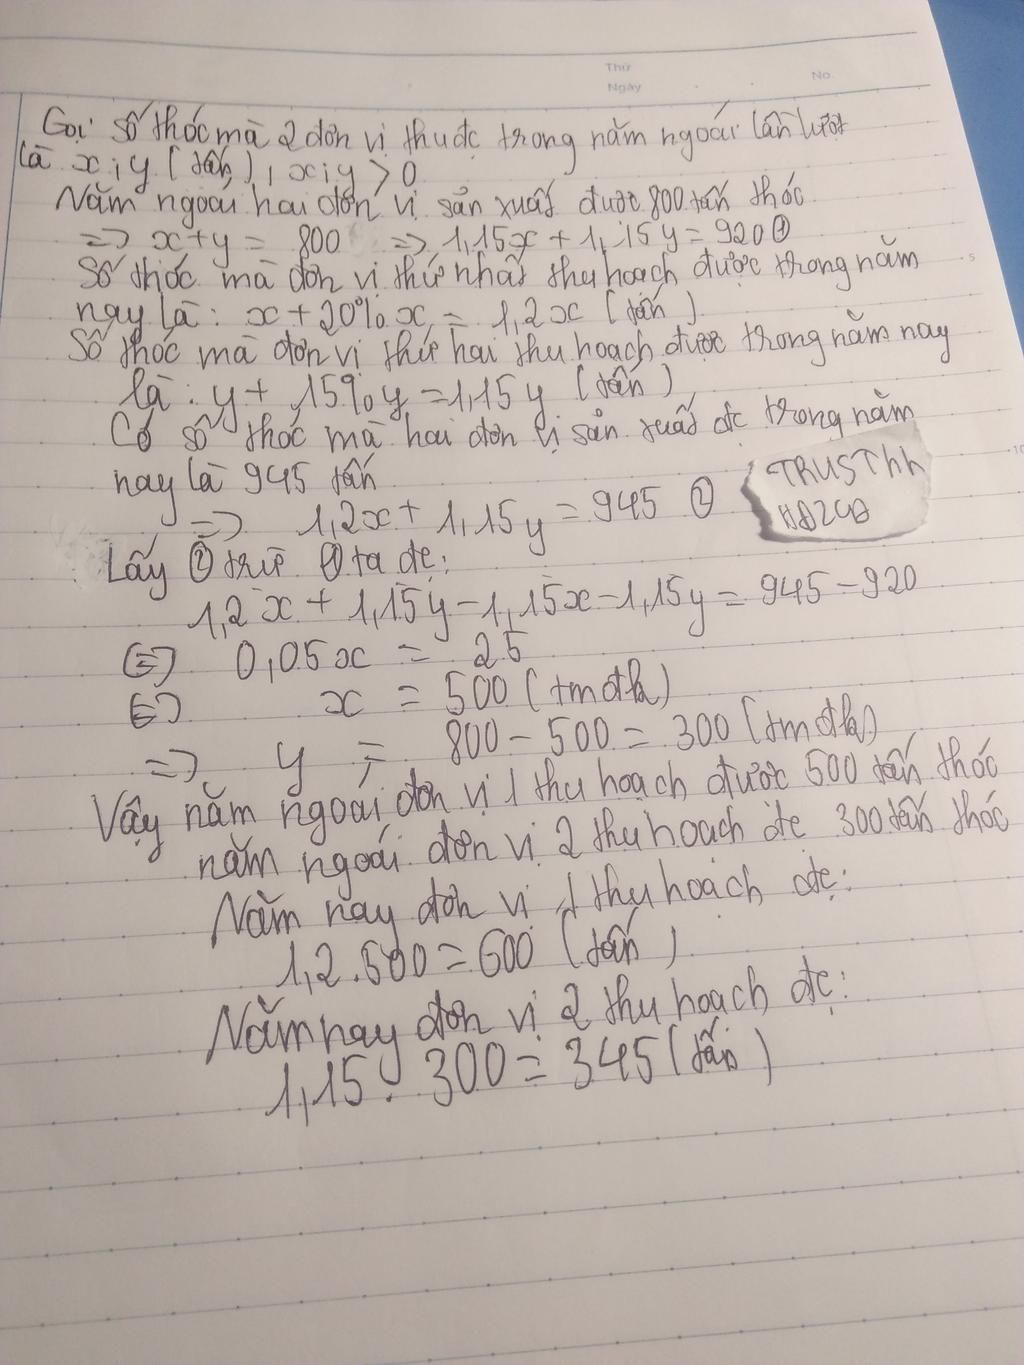 Thứ
Ngày
No.
Gọi số thóc mà 2 đơn vị thu đc trong năm ngoái lần lượt
là x; y (tấn), x; y > 0
Năm ngoái hai đơn vị sản xuất được 800 tấn thóc
=> x + y = 800 => 1,15x + 1,15y = 920 ①
Số thóc mà đơn vị thứ nhất thu hoạch được trong năm
nay là: x + 20% x = 1,2x (tấn)
Số thóc mà đơn vị thứ hai thu hoạch được trong năm nay
là: y + 15% y = 1,15y (tấn)
Có số thóc mà hai đơn vị sản xuất đc trong năm
nay là 945 tấn
=> 1,2x + 1,15y = 945 ②
TRUSThh
Lấy ② trừ ① ta đc:
1,2x + 1,15y - 1,15x - 1,15y = 945 - 920
<=> 0,05x = 25
<=> x = 500 (tmđk)
=> y = 800 - 500 = 300 (tmđk)
Vậy năm ngoái đơn vị 1 thu hoạch được 500 tấn thóc
năm ngoái đơn vị 2 thu hoạch đc 300 tấn thóc
Năm nay đơn vị 1 thu hoạch đc:
1,2 . 500 = 600 (tấn)
Năm nay đơn vị 2 thu hoạch đc:
1,15 . 300 = 345 (tấn)